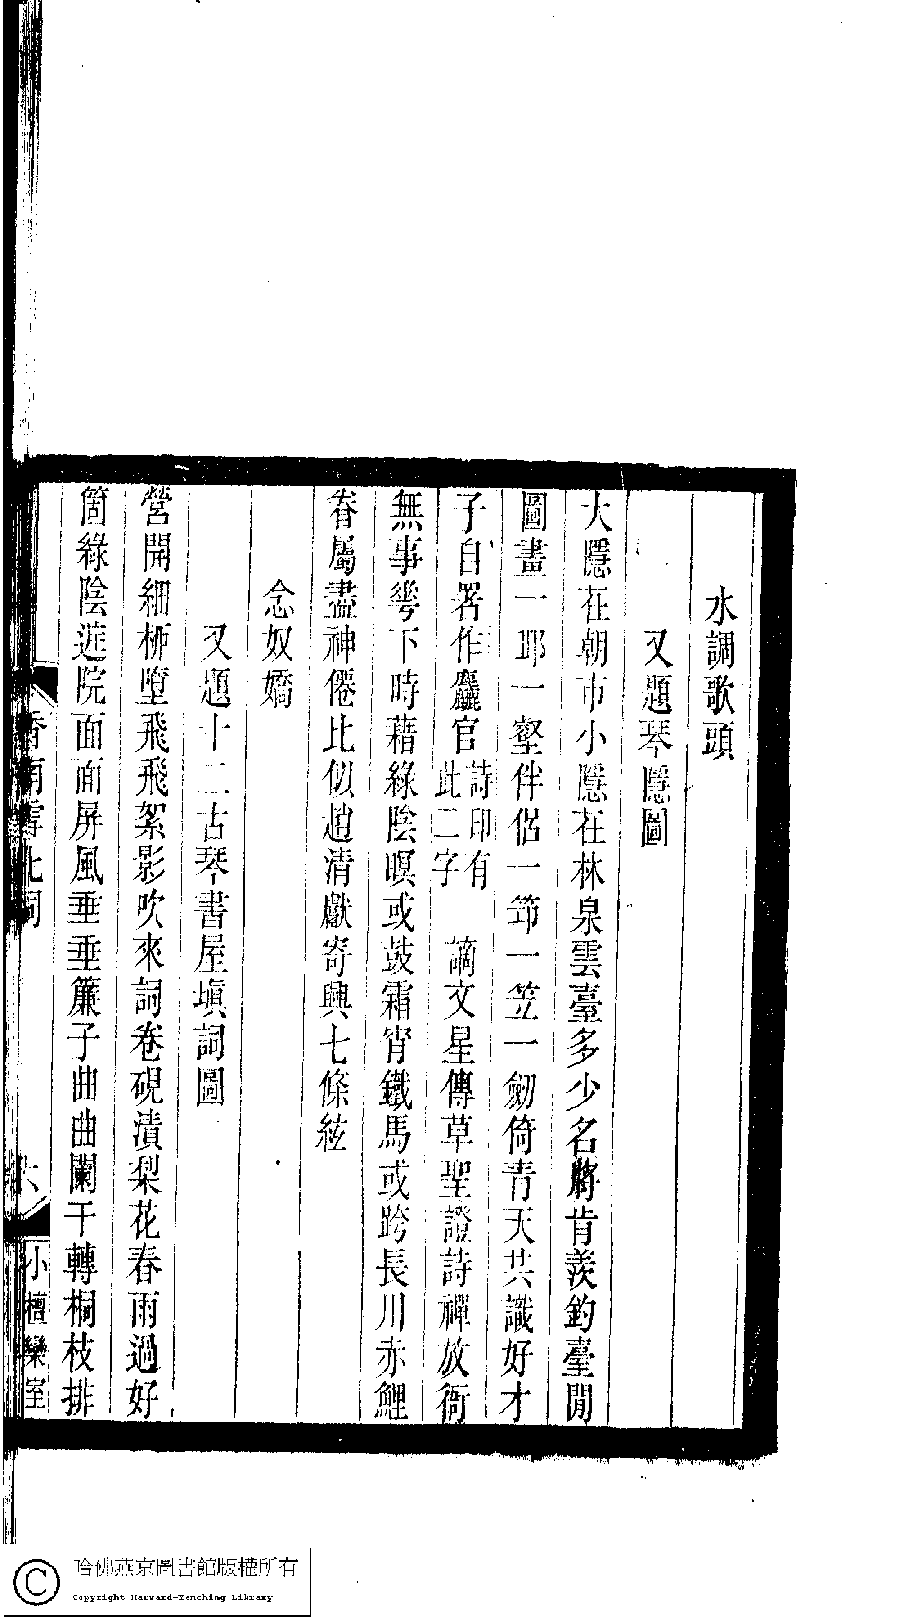 水調歌頭
又題琴隱圖
大隱在朝市小隱在林泉雲臺多少名將肯羨釣臺閒
圖畫一邱一壑伴侶一筇一笠一劒倚青天共識好才
子自署作麤官詩印有此二字 謫文星傳草聖證詩禪放衙
無事蕚下時藉綠陰暝或鼓霜宵鐵馬或跨長川赤鯉
眷屬盡神僊比似趙清獻寄興七條絃
念奴嬌
又題十二古琴書屋塡詞圖
營開細柳墮飛飛絮影吹來詞卷硯漬梨花春雨過好
箇綠陰遮院面面屏風垂垂簾子曲曲闌干轉桐枝排
香南雪北詞
六
小檀欒室
哈佛燕京圖書館版權所有
Copyright Harvard-Yenching Library